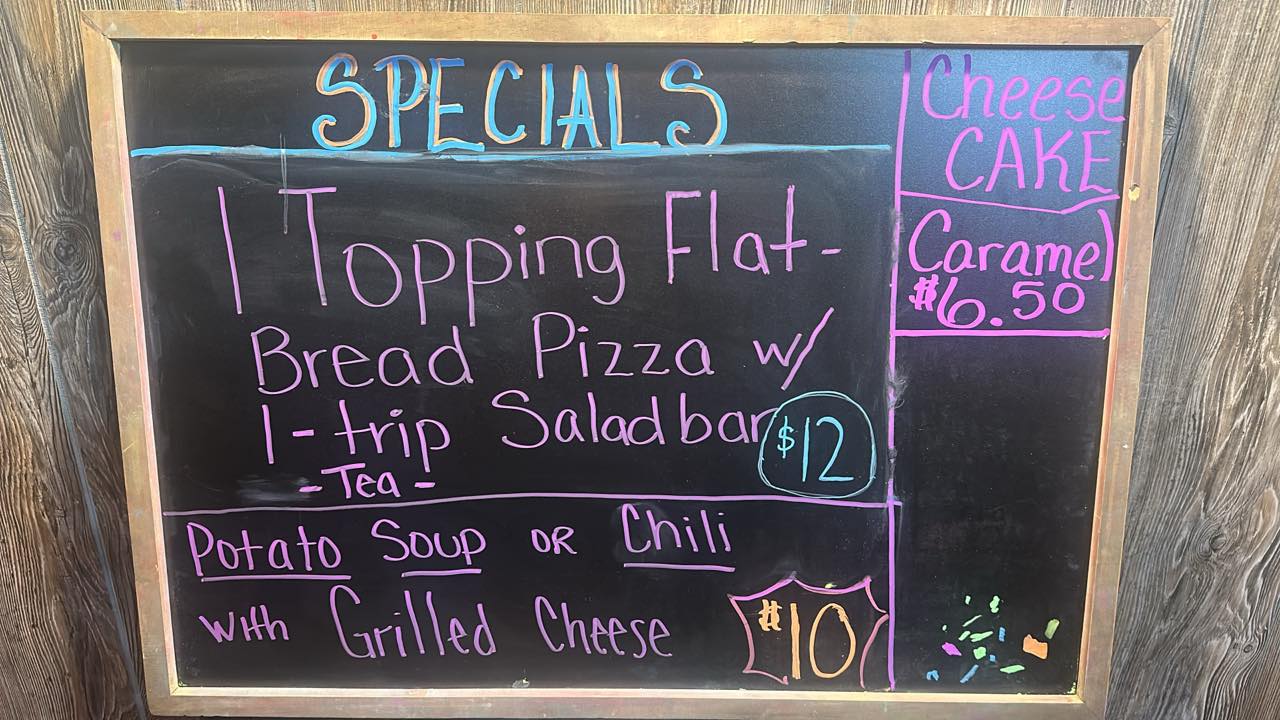 SPECIALS
1 Topping Flat-
Bread Pizza w/
1-trip Salad bar
$12
-Tea-
Potato Soup OR Chili
with Grilled Cheese
$10
Cheese
CAKE
Caramel
$6.50